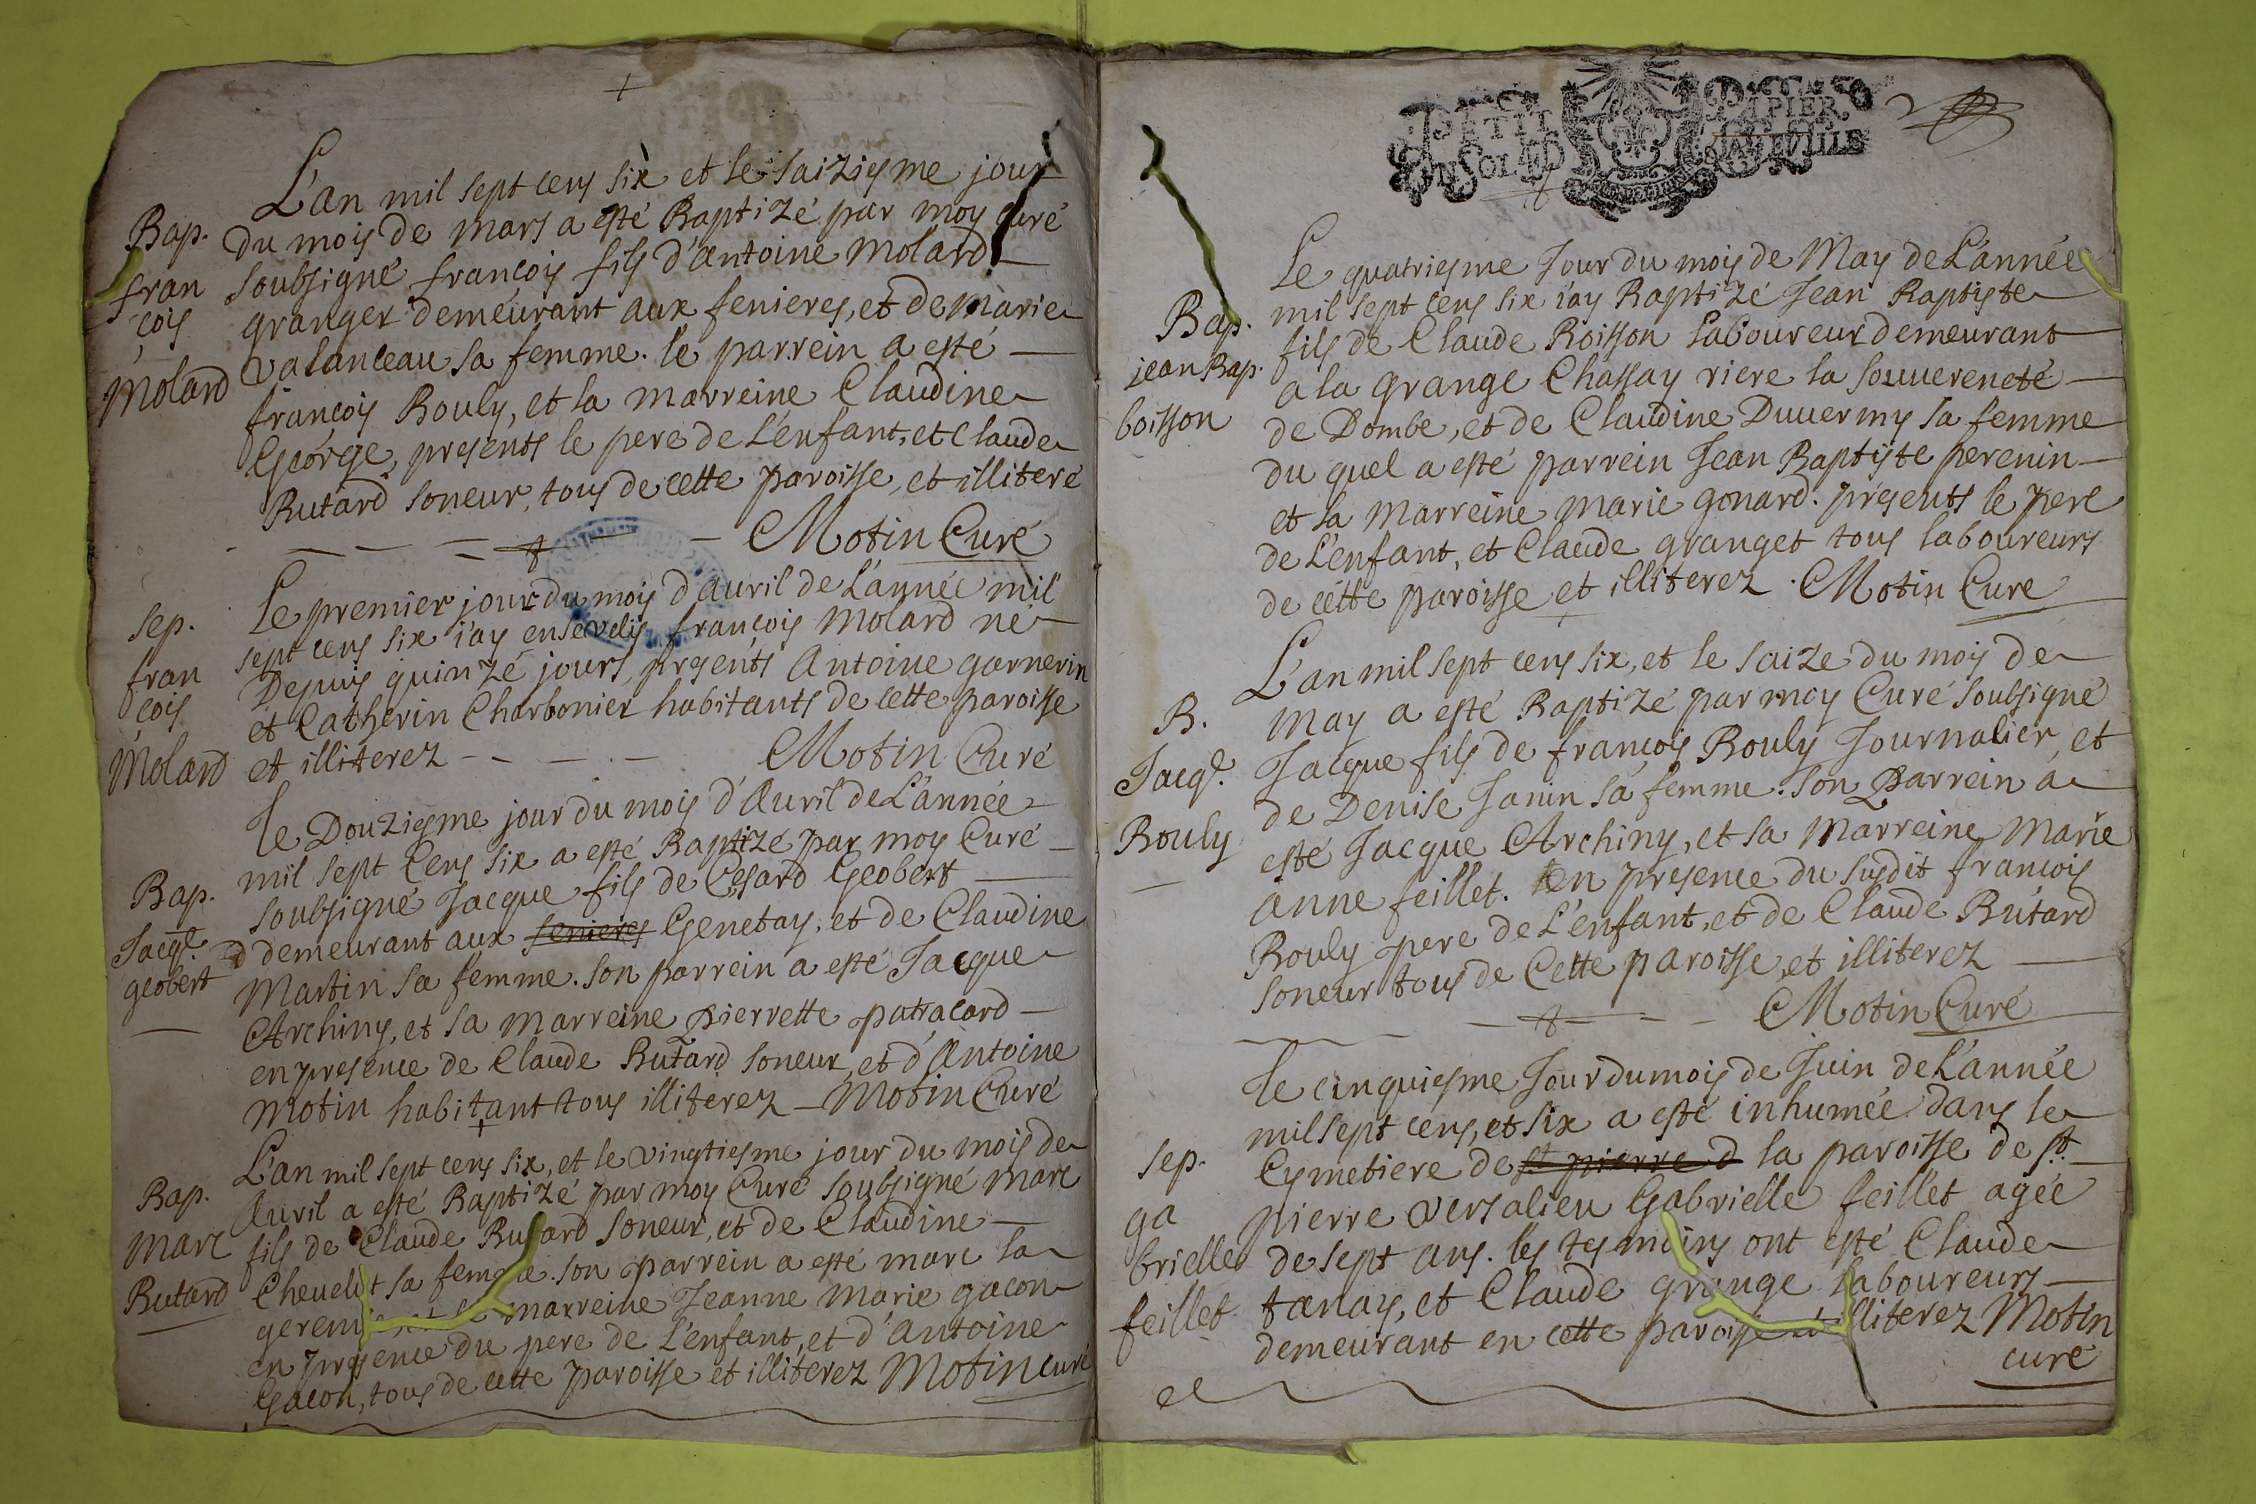 L'an mil sept cens six et le saiziesme jour
Bap. du mois de mars a esté Baptizé par moy curé
fran soubsigné françois fils d'antoine molard
çois granger demeurant aux fenieres, et de marie
molard valanceau sa femme. le parrein a esté
françois Bouly, et la marreine Claudine
George, presents le pere de L'enfant, et Claude
Butard soneur, tous de cette paroisse, et illiteré
Motin Curé
Le premier jour du mois d'auril de L'année mil
Sep. sept cens six i'ay ensevelis françois Molard né
fran Depuis quinzé jours, presents Antoine garnerin
cois et Catherin Charbonier habitants de cette paroisse
Molard et illiterez Motin Curé
Le Douziesme jour du mois d'Auril de L'année
mil sept Cens six a esté Baptizé par moy Curé
Bap. soubsigné Jacque fils de Cesard Geobert
Jacq. demeurant aux fenieres Genetay, et de Claudine
geobert Martin sa femme. son parrein a esté Jacque
Archiny, et sa marreine pierrette patracard
en presence de Claude Butard soneur, et d'Antoine
Motin habitant tous illiterez Motin Curé
L'an mil sept cens six, et le vingtiesme jour du mois de
Bap. Auril a esté Baptizé par moy Curé soubsigné marc
Marc fils de Claude Butard soneur, et de Claudine
Butard Chevelut sa femme. son parrein a esté marc la
marreine Jeanne Marie gacon
en presence du pere de L'enfant, et d'antoine
Gacon, tous de cette paroisse et illiterez Motin curé
PETIT PAPIER
Le quatriesme Jour du mois de May de L'année
Bap. mil sept cens six i'ay Baptizé Jean Baptiste
jean Bap. fils de Claude Boisson laboureur demeurant
boisson a la grange Chassay riere la souvereneté
de Dombe, et de Claudine Duverny sa femme
du quel a esté parrein Jean Baptiste perenin
et la marreine marie gonard. présents le pere
de L'enfant, et Claude granget tous laboureurs
de cétte paroisse et illiterez. Motin Curé
L'an mil sept cens six, et le saize du mois de
B. May a esté Baptizé par moy Curé soubsigné
Jacq. Jacque fils de françois Bouly Journalier, et
de Denise Janin sa femme. son parrein a
Bouly esté Jacque Archiny, et sa Marreine Marie
anne feillet. En presence du susdit francois
Bouly pere de L'enfant, et de Claude Butard
soneur tous de Cette paroisse, et illiterez
Motin Curé
Le cinquiesme Jour du mois de Juin de L'année
mil sept cens, et six a esté inhumée dans le
Sep. Cymetiere de st pierre d la paroisse de st
ga pierre versalieu Gabrielle feillet agée
brielle de sept ans. les tesmoins ont esté Claude
feillet tanay, et Claude grange laboureurs
demeurant en cette paroisse et illiterez Motin
curé